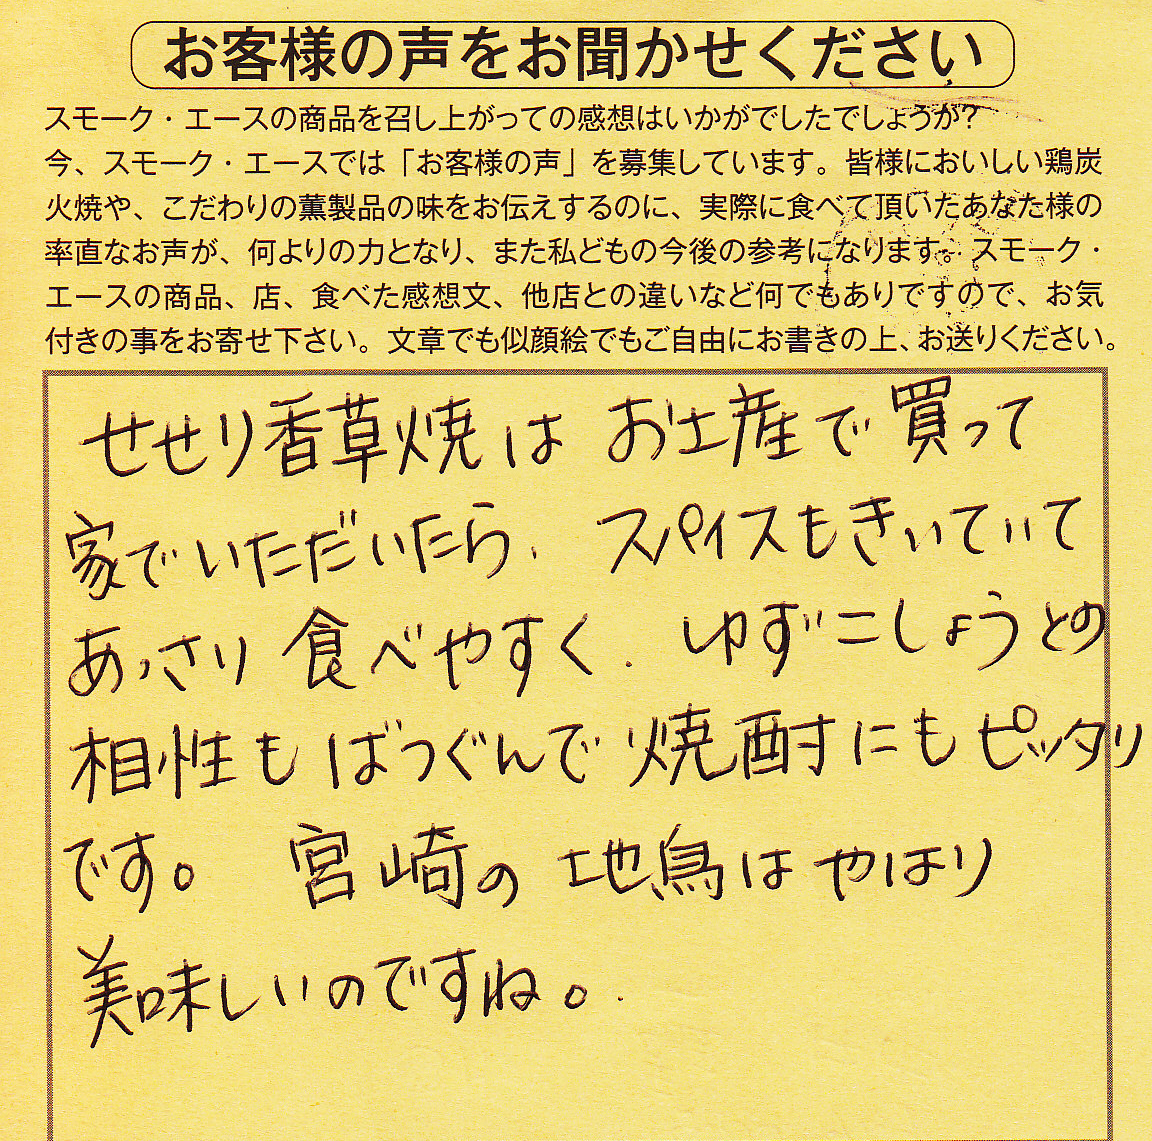 お客様の声をお聞かせください
スモーク・エースの商品を召し上がっての感想はいかがでしたでしょうか?
今、スモーク・エースでは「お客様の声」を募集しています。皆様においしい鶏炭
火焼や、こだわりの薫製品の味をお伝えするのに、実際に食べて頂いたあなた様の
率直なお声が、何よりの力となり、また私どもの今後の参考になります。スモーク・
エースの商品、店、食べた感想文、他店との違いなど何でもありですので、お気
付きの事をお寄せ下さい。文章でも似顔絵でもご自由にお書きの上、お送りください。
せせり香草焼は お土産で買って
家でいただいたら、スパイスもきいていて
あっさり食べやすく、ゆずこしょうとの
相性もばつぐんで焼酎にもピッタリ
です。 宮崎の地鳥はやはり
美味しいのですね。